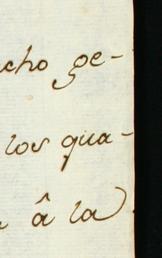 cho ge-
los qua-
â la